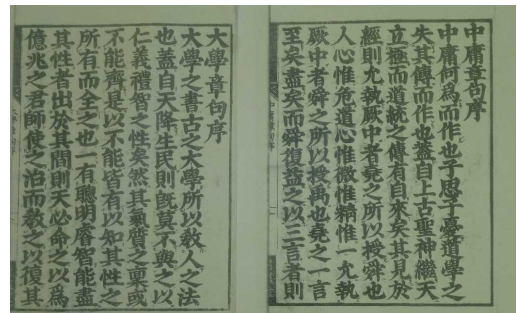 中庸章句序
中庸何爲而作也子思子憂道學之
失其傳而作也蓋自上古聖神繼天
立極而道統之傳有自來矣其見於
經則允執厥中者堯之所以授舜也
人心惟危道心惟微惟精惟一允執
厥中者舜之所以授禹也堯之一言
至矣盡矣而舜復益之以三言者則
大學章句序
大學之書古之大學所以教人之法
也蓋自天降生民則旣莫不與之以
仁義禮智之性矣然其氣質之稟或
不能齊是以不能皆有以知其性之
所有而全之也一有聰明睿智能盡
其性者出於其間則天必命之以爲
億兆之君師使之治而教之以復其